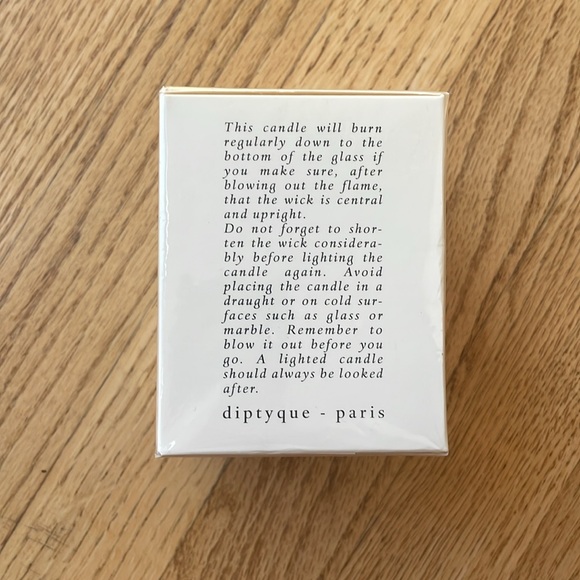 This candle will burn
regularly down to the
bottom of the glass if
you make sure, after
blowing out the flame,
that the wick is central
and upright.
Do not forget to shor-
ten the wick considera-
bly before lighting the
candle again. Avoid
placing the candle in a
draught or on cold sur-
faces such as glass or
marble. Remember to
blow it out before you
go. A lighted candle
should always be looked
after.
diptyque - paris